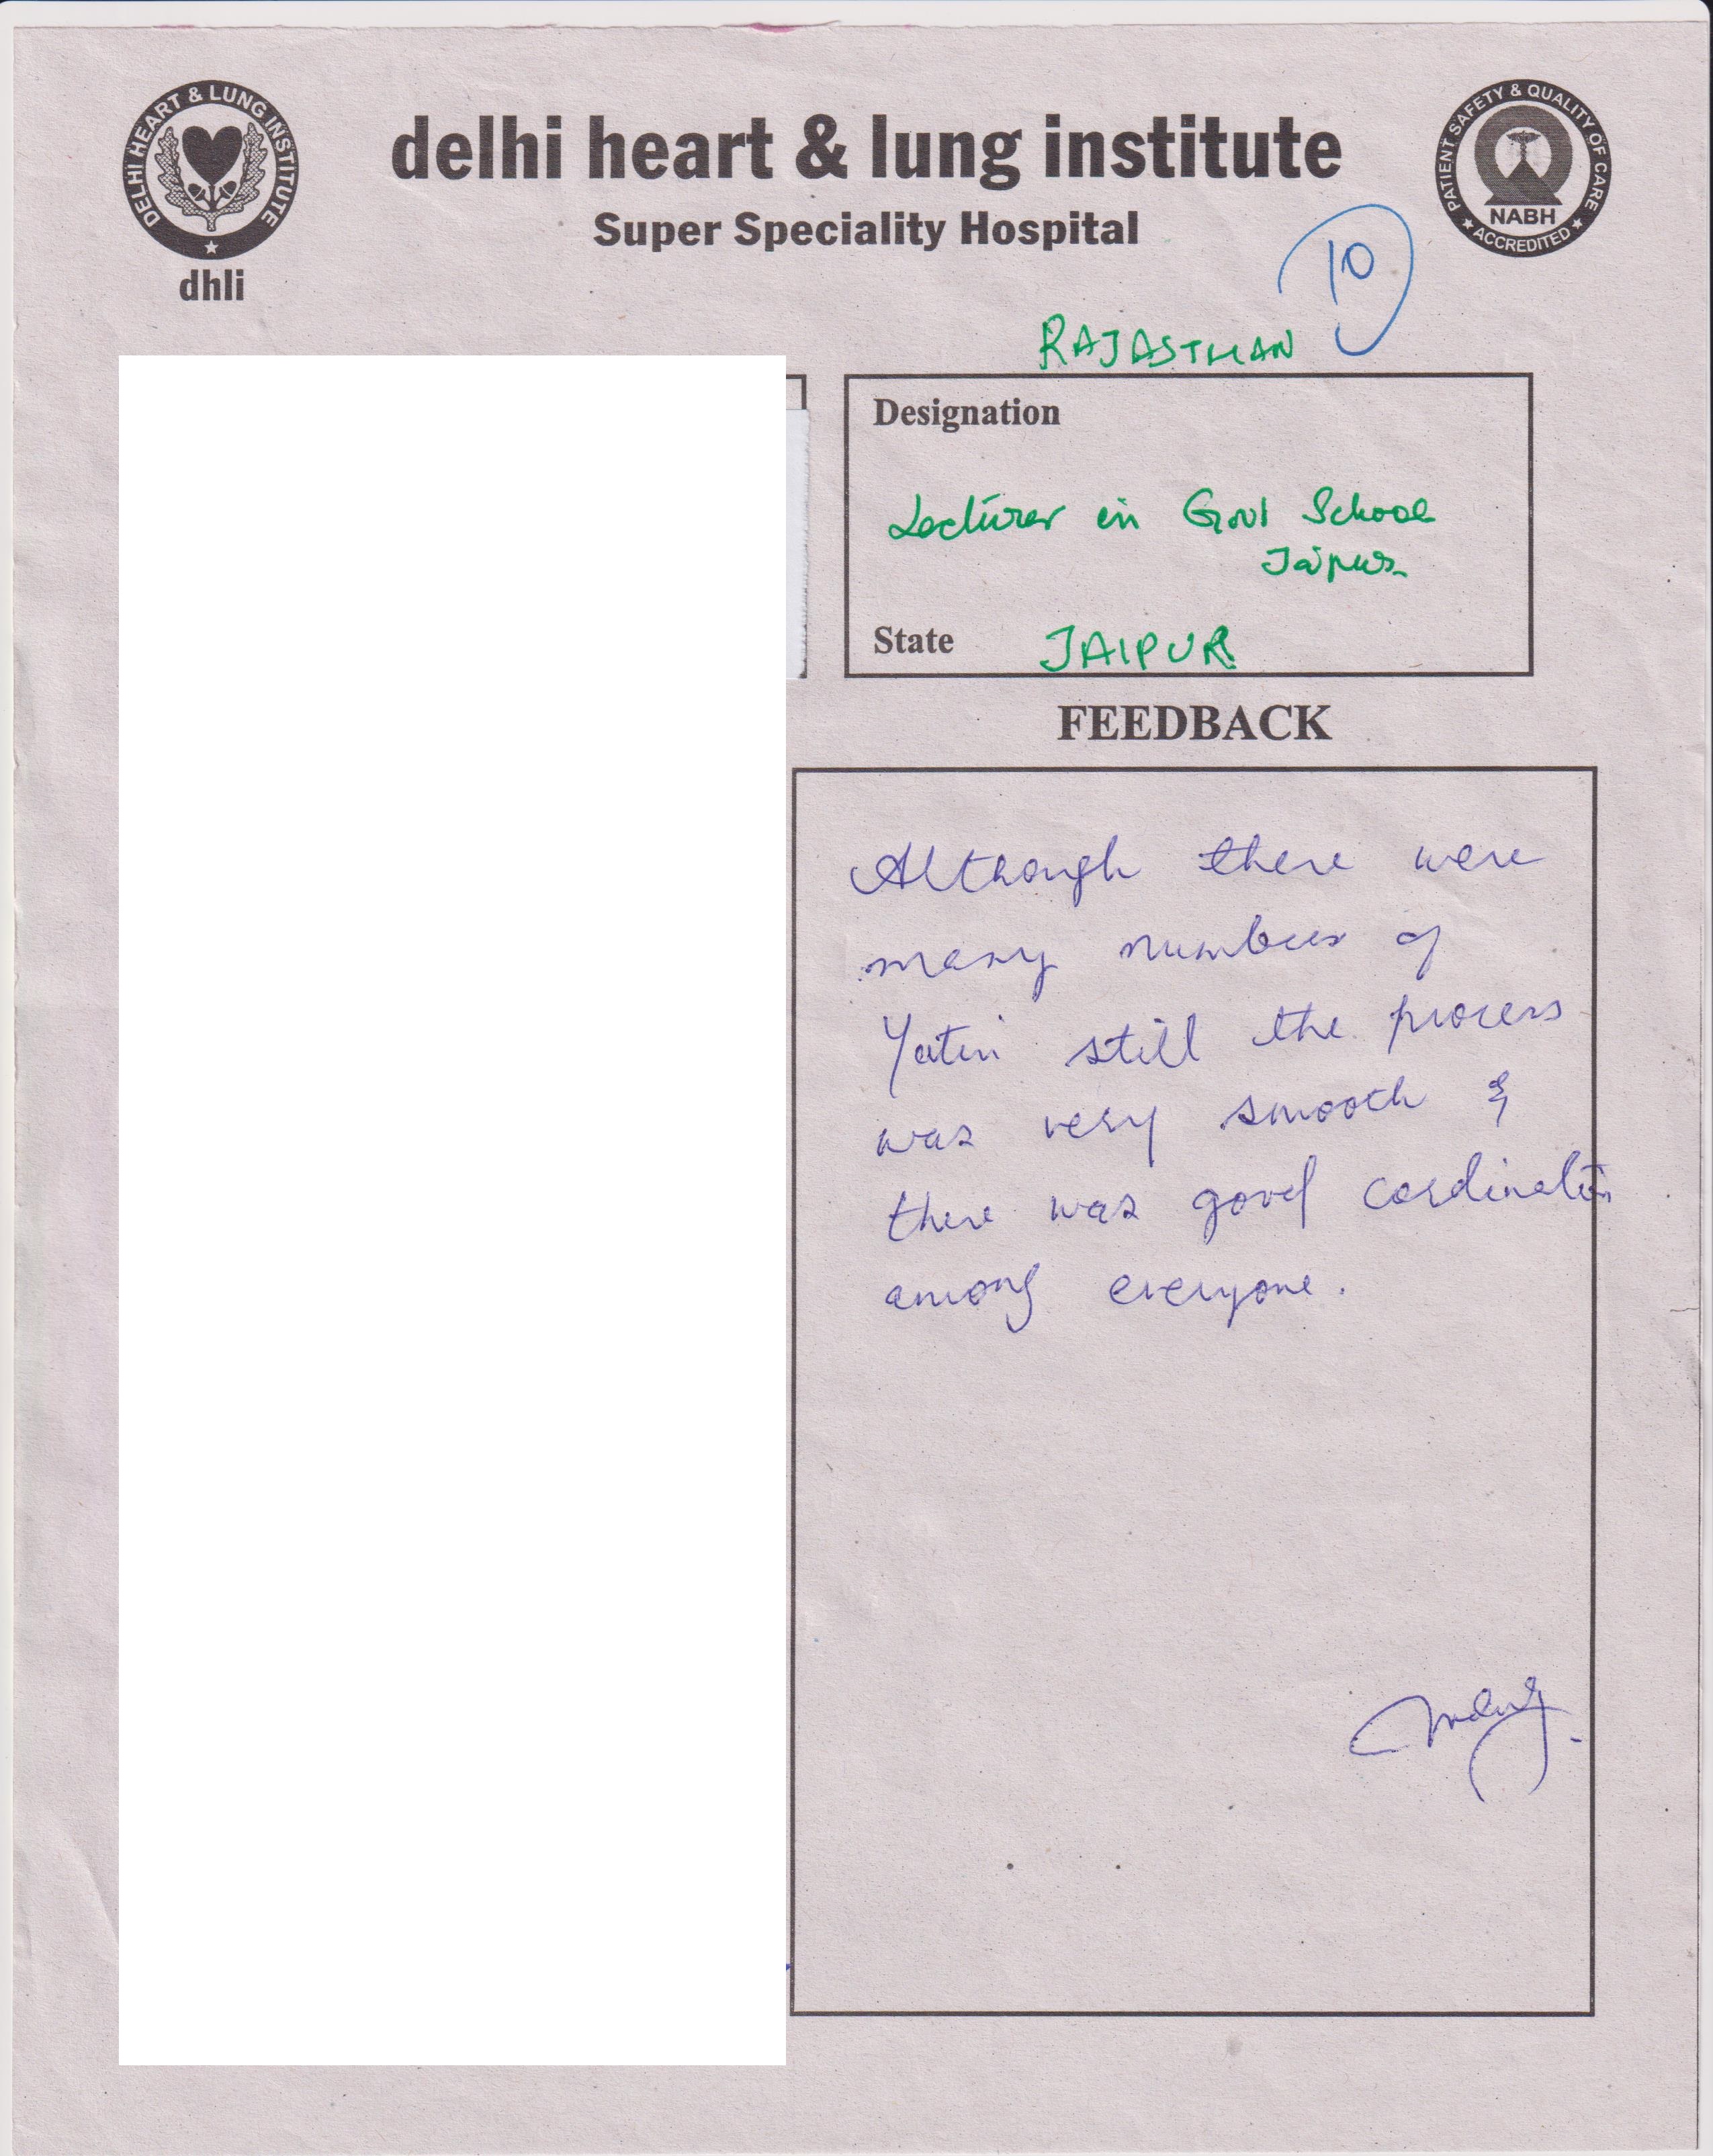 DELHI HEART & LUNG INSTITUTE
dhli
delhi heart & lung institute
Super Speciality Hospital
PATIENT SAFETY & QUALITY OF CARE
NABH
ACCREDITED
10
RAJASTHAN
Designation
Lecturer in Govt School
Jaipur
State JAIPUR
FEEDBACK
Although there were
many number of
Yatri still the process
was very smooth &
there was good cordination
among everyone.